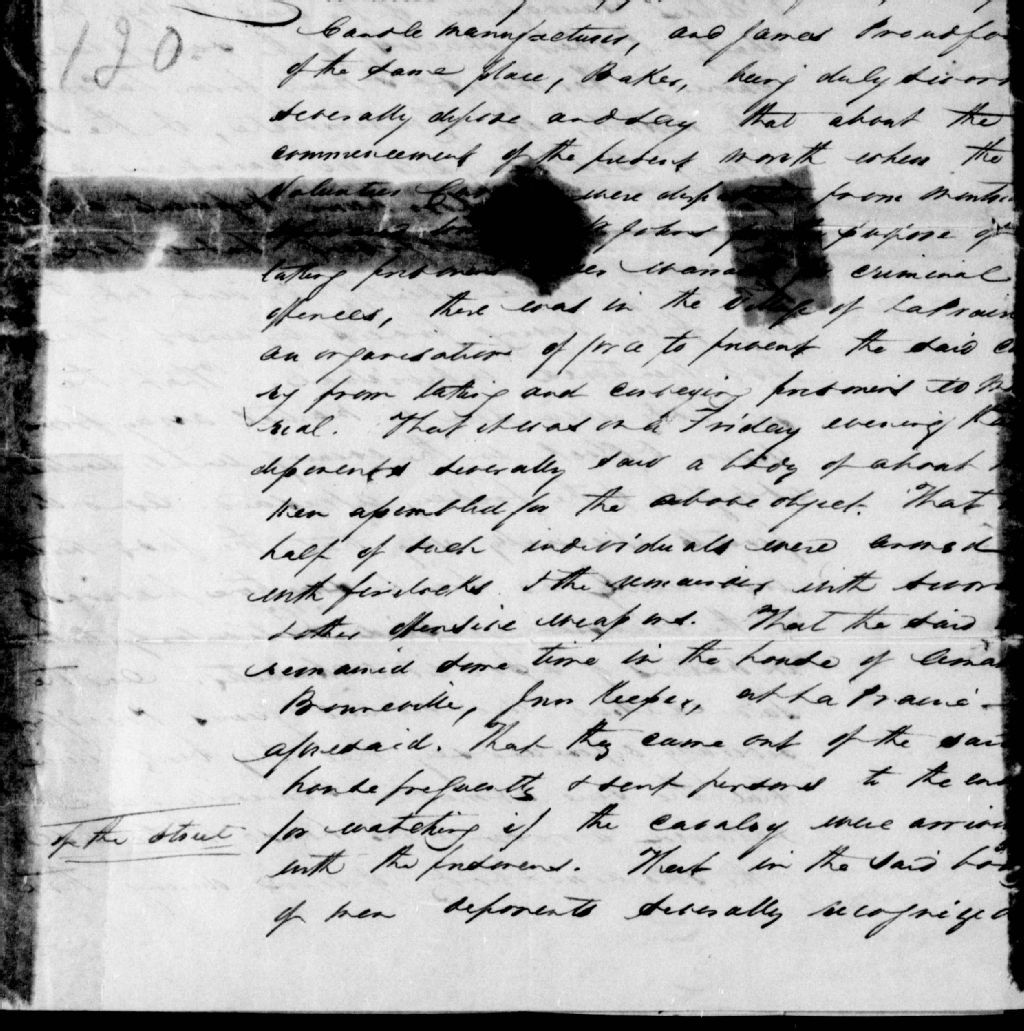 120
Candle manufacturer, and James Proudfoo
of the same place, Baker, being duly sworn
severally depose and say that about the
commencement of the present month when the
Volunteer were from Montre
St Johns purpose of
taking prisoners criminal
offences, there was in the Village of Laprairi
an organisation of force to prevent the said ca
ry from taking and conveying prisoners to Mo
real. That it was on a Friday evening that
deponents severally saw a body of about
men assembled for the above object. That
half of such individuals were armed
with firelocks & the remainder with sword
& other offensive weapons. That the said
remained some time in the house of
Bonneville, Inn Keeper, at La Prairie
aforesaid. That they came out of the said
house frequently & sent persons to the end
of the street
for watching if the cavalry were arriving
with the prisoners. That in the said body
of men deponents severally recognized